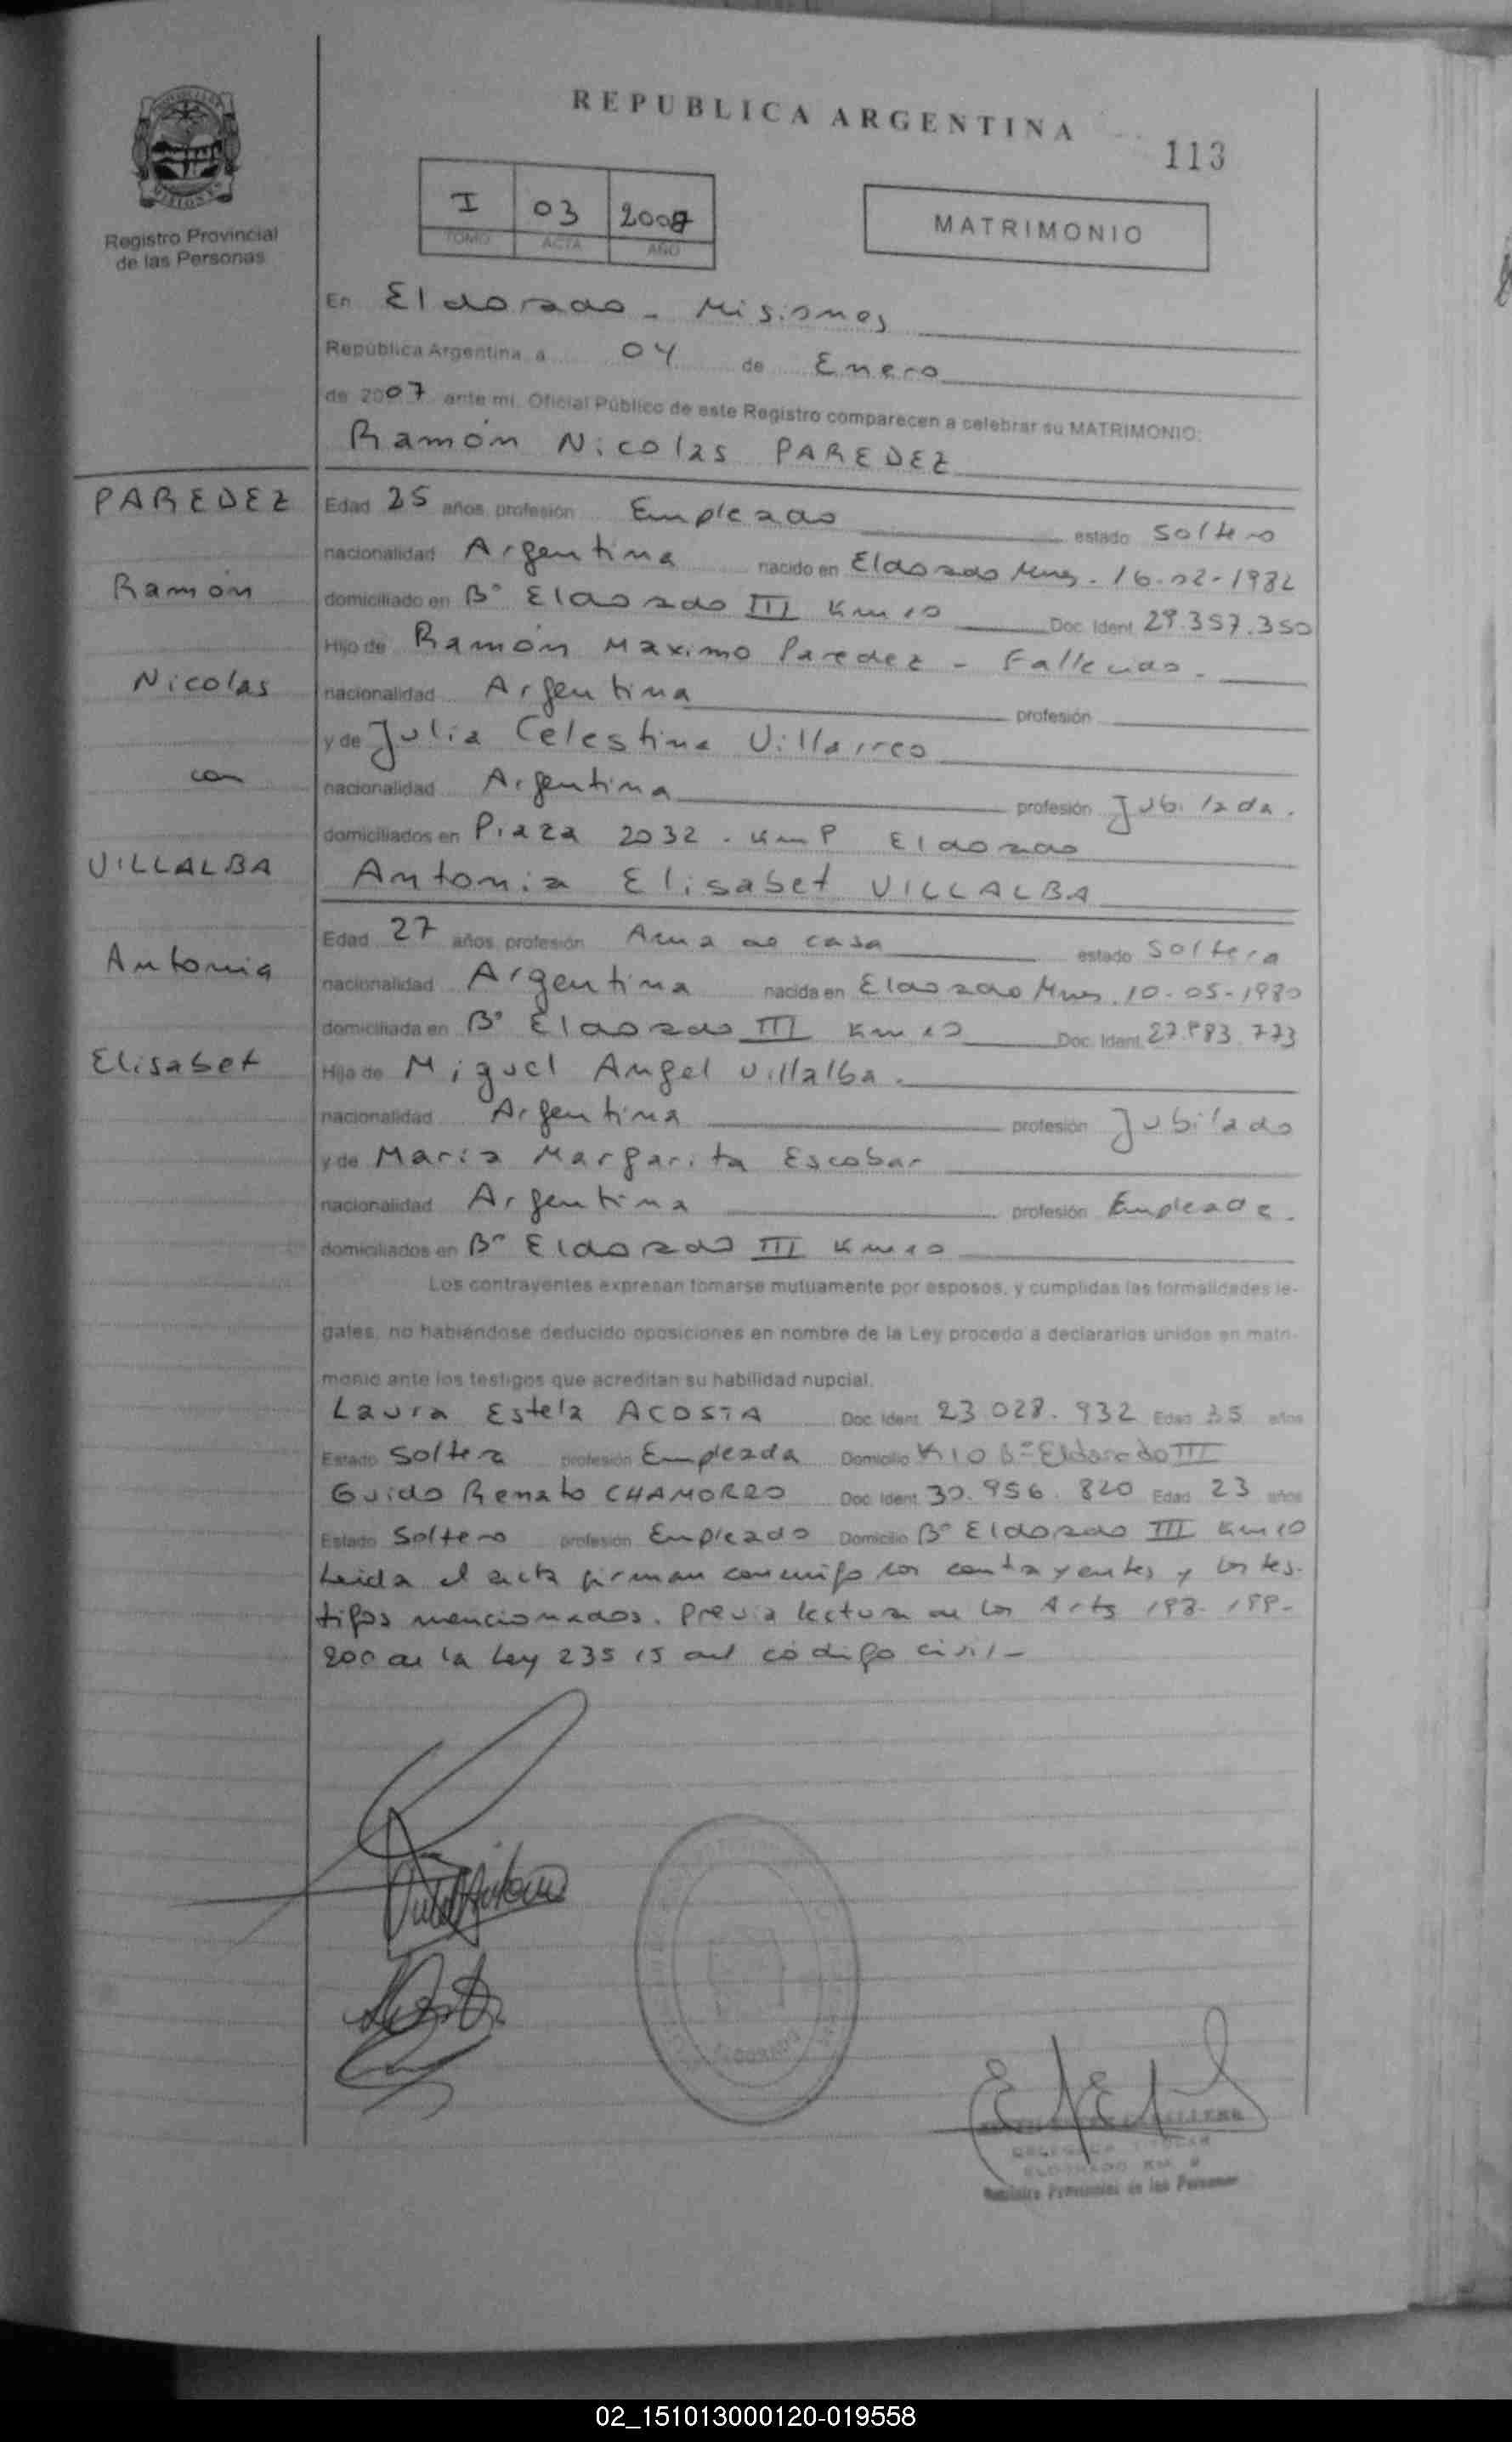 REPUBLICA ARGENTINA
113
I 03 2007
TOMO ACTA AÑO
MATRIMONIO
Registro Provincial
de las Personas
En Eldorado - Misiones
República Argentina, a 04 de Enero
de 2007 ante mi, Oficial Público de este Registro comparecen a celebrar su MATRIMONIO:
Ramón Nicolas PAREDEZ
PAREDEZ
Ramón
Nicolas
con
VILLALBA
Antonia
Elisabet
Edad 25 años profesión Empleado estado Soltero
nacionalidad Argentina nacido en Eldorado Mnes. 16-02-1982
domiciliado en B° Eldorado III Km 10 Doc. Ident. 29.357.350
Hijo de Ramón Maximo Paredez - Fallecido -
nacionalidad Argentina profesión
y de Julia Celestina Villarreo
nacionalidad Argentina profesión Jubilada.
domiciliados en 2032 - Km 9 Eldorado
Antonia Elisabet VILLALBA
Edad 27 años profesión Ama de casa estado Soltera
nacionalidad Argentina nacida en Eldorado Mnes. 10-05-1980
domiciliada en B° Eldorado III Km 10 Doc. Ident.
Hija de Miguel Angel Villalba.
nacionalidad Argentina profesión Jubilado
y de Maria Margarita Escobar
nacionalidad Argentina profesión Empleada.
domiciliados en B° Eldorado III Km 10
Los contrayentes expresan tomarse mutuamente por esposos, y cumplidas las formalidades le-
gales, no habiéndose deducido oposiciones en nombre de la Ley procedo a declararlos unidos en matri-
monio ante los testigos que acreditan su habilidad nupcial.
Laura Estela ACOSTA Doc. Ident. 23.028.932 Edad 35 años
Estado Soltera profesión Empleada Domicilio K10 B° Eldorado III
Guido Renato CHAMORRO Doc. Ident. 30.956.820 Edad 23 años
Estado Soltero profesión Empleado Domicilio B° Eldorado III Km 10
Leida el acta firman conmigo los contrayentes y los tes-
tigos mencionados. Previa lectura de los Arts 198-199-
200 de la Ley 23515 del código civil -
ELDORADO KM. 9
Registro Provincial de las Personas
02_151013000120-019558